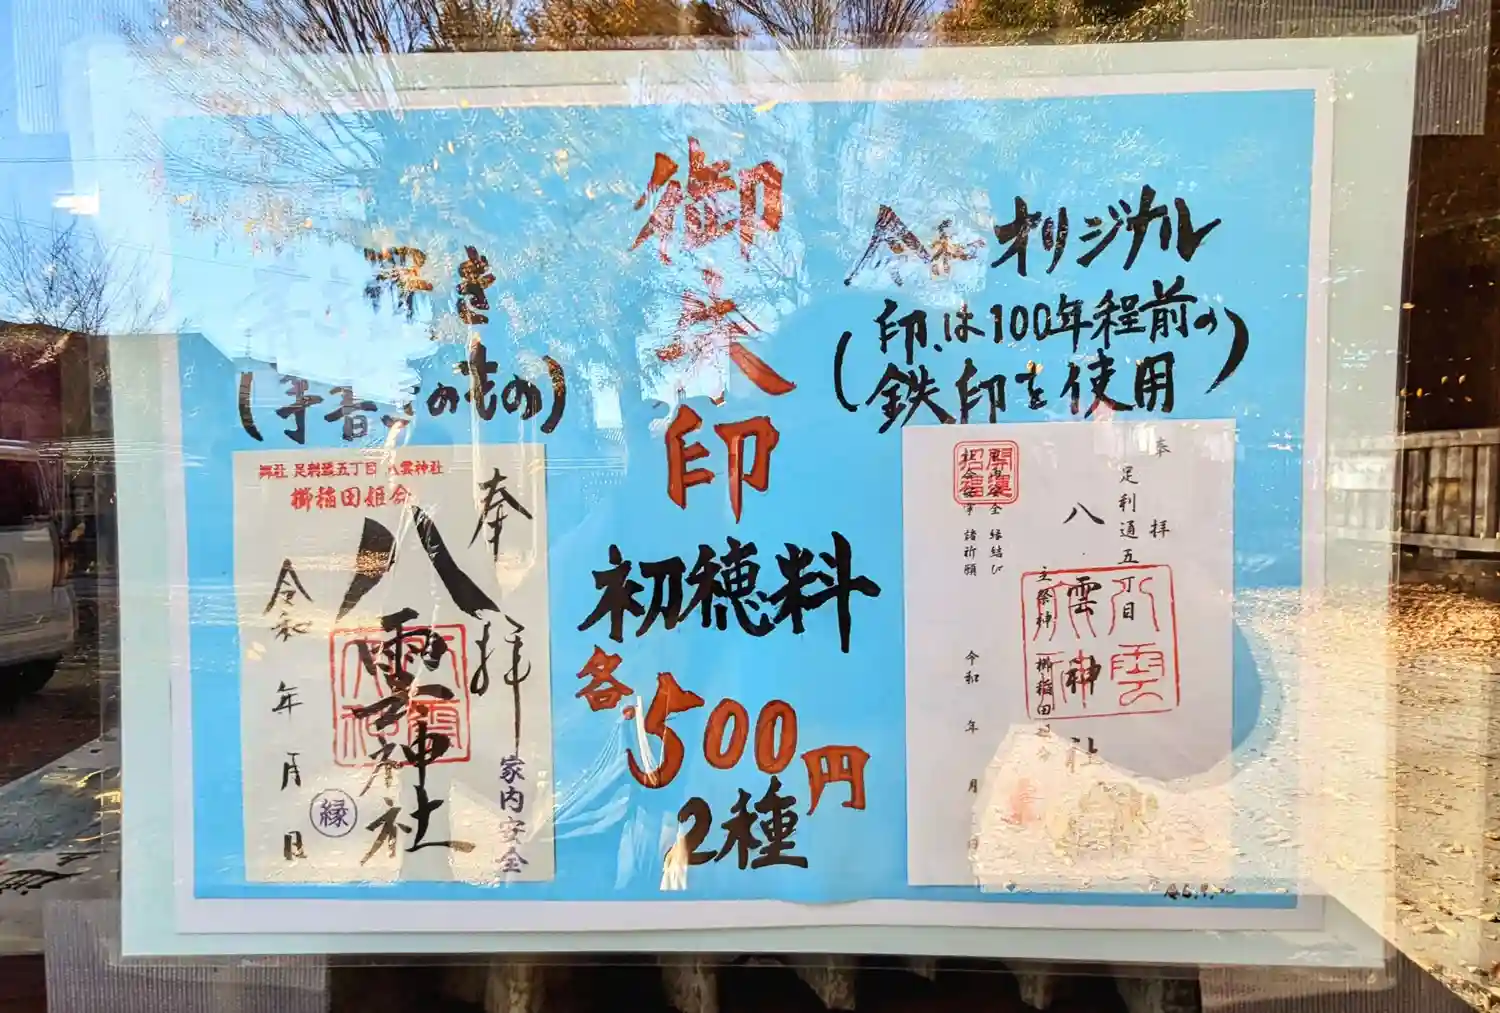 御朱印
初穂料
各500円
2種
令和オリジナル
(印は100年程前の
鉄印を使用)
奉拝
足利通五丁目
八雲神社
主祭神
諸祈願
縁結び
令和 年 月 日
書き
(手書きのもの)
郷社 足利通五丁目 八雲神社
櫛稲田姫命
奉拝
八雲神社
令和 年 月 日
縁
家内安全